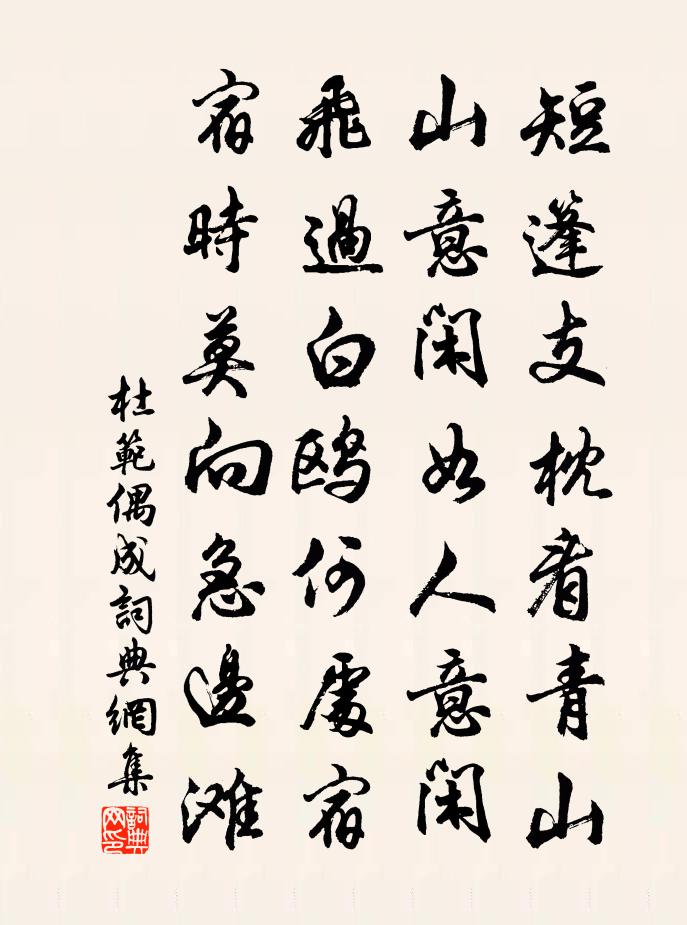 短篷支枕看青山
山意閑如人意閑
飛過白鸥何處宿
宿時莫向急邊滩
杜範偶成詞典網集
詞典網印